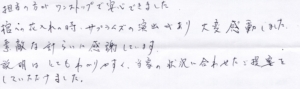 担当の方が ワンストップで安心できました。
棺への花入れの時、サプライズの演出があり 大変感動しました。
素敵な計らいに感謝しています。
説明は とてもわかりやすく、当家の状況に合わせたご提案を
していただけました。